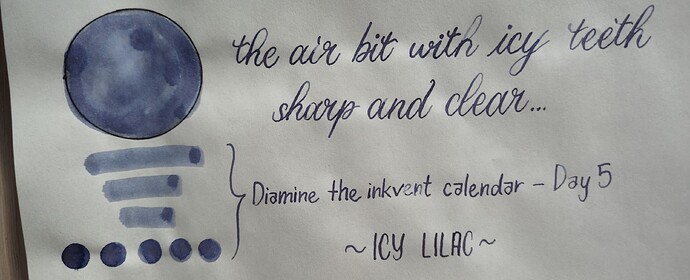 the air bit with icy teeth
sharp and clear...
Diamine the inkvent calendar - Day 5
~ICY LILAC~